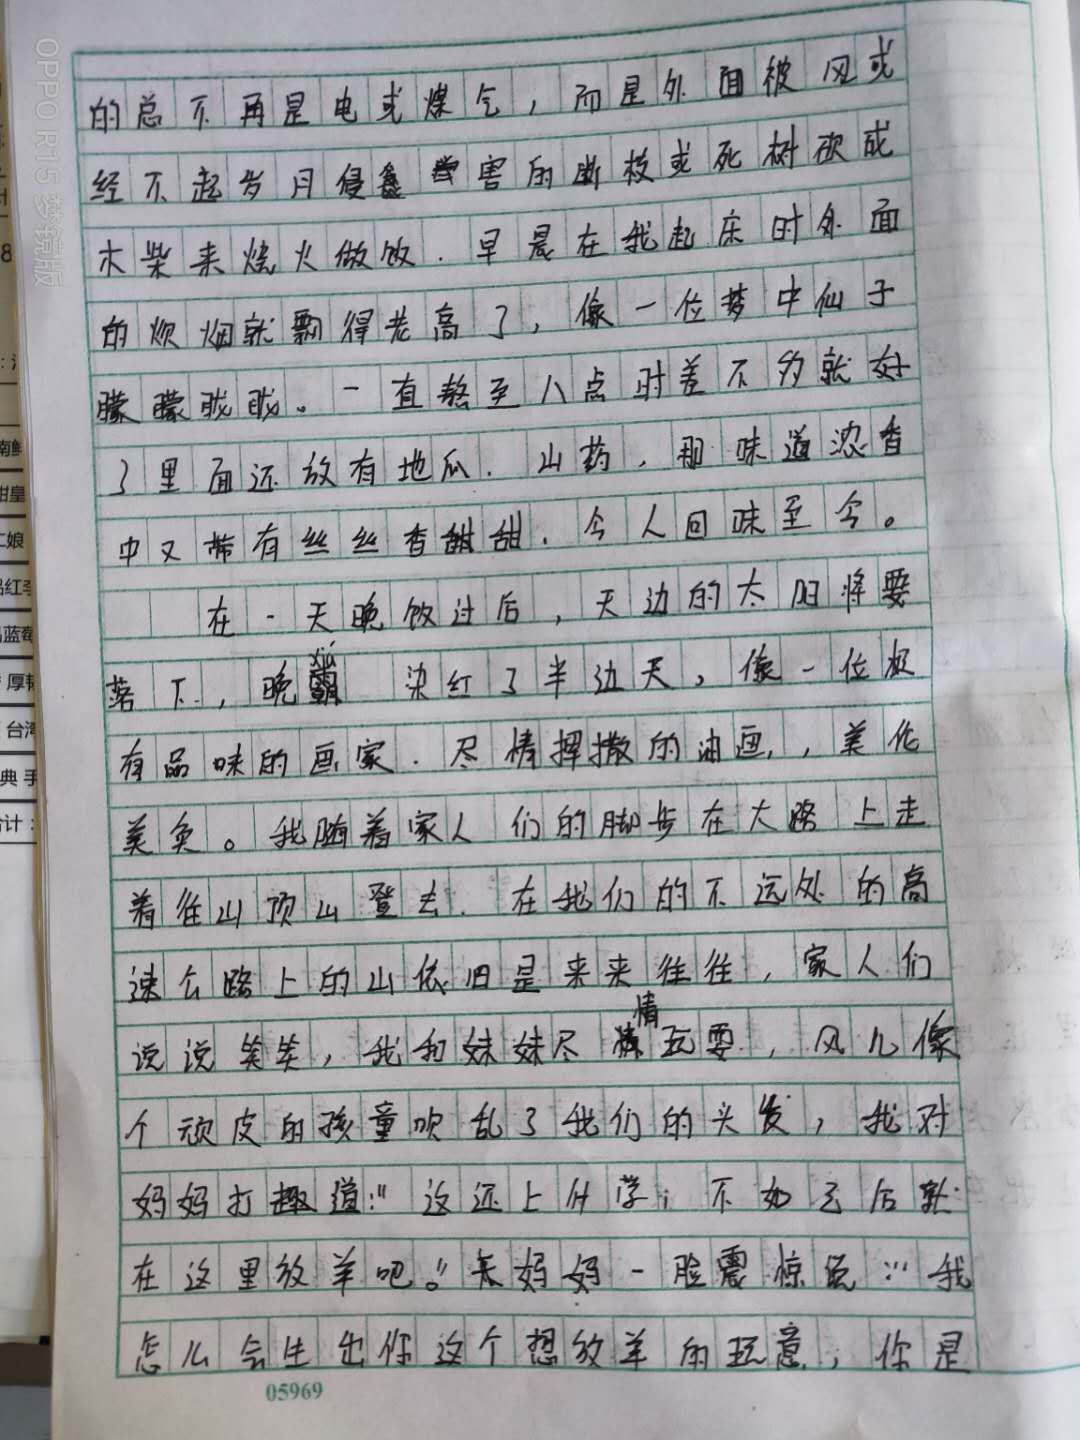 OPPO R15 梦镜版
的总不再是电或煤气，而是外面被风或
经不起岁月侵 害的断枝或死树砍成
木柴来烧火做饭．早晨在我起床时外面
的炊烟就飘得老高了，像一位梦中仙子
朦朦胧胧。一直熬至八点时差不多就好
了里面还放有地瓜．山药，那味道浓香
中又带有丝丝香甜甜．令人回味至今。
在一天晚饭过后，天边的太阳将要
落下，晚 xiá 染红了半边天，像一位极
有品味的画家．尽情挥撒的油画，美伦
美奂。我随着家人们的脚步在大路上走
着往山顶山登去．在我们的不远处的高
速公路上的山依旧是来来往往，家人们
说说笑笑，我和妹妹尽情玩耍，风儿像
个顽皮的孩童吹乱了我们的头发，我对
妈妈打趣道："这还上什学；不如云后就
在这里放羊吧。"妈妈一脸震惊说："我
怎么会生出你这个想放羊的玩意，你是
05969
南鲜
甜皇
红娘
品红李
品蓝莓
厚
台湾
典 手
合计：